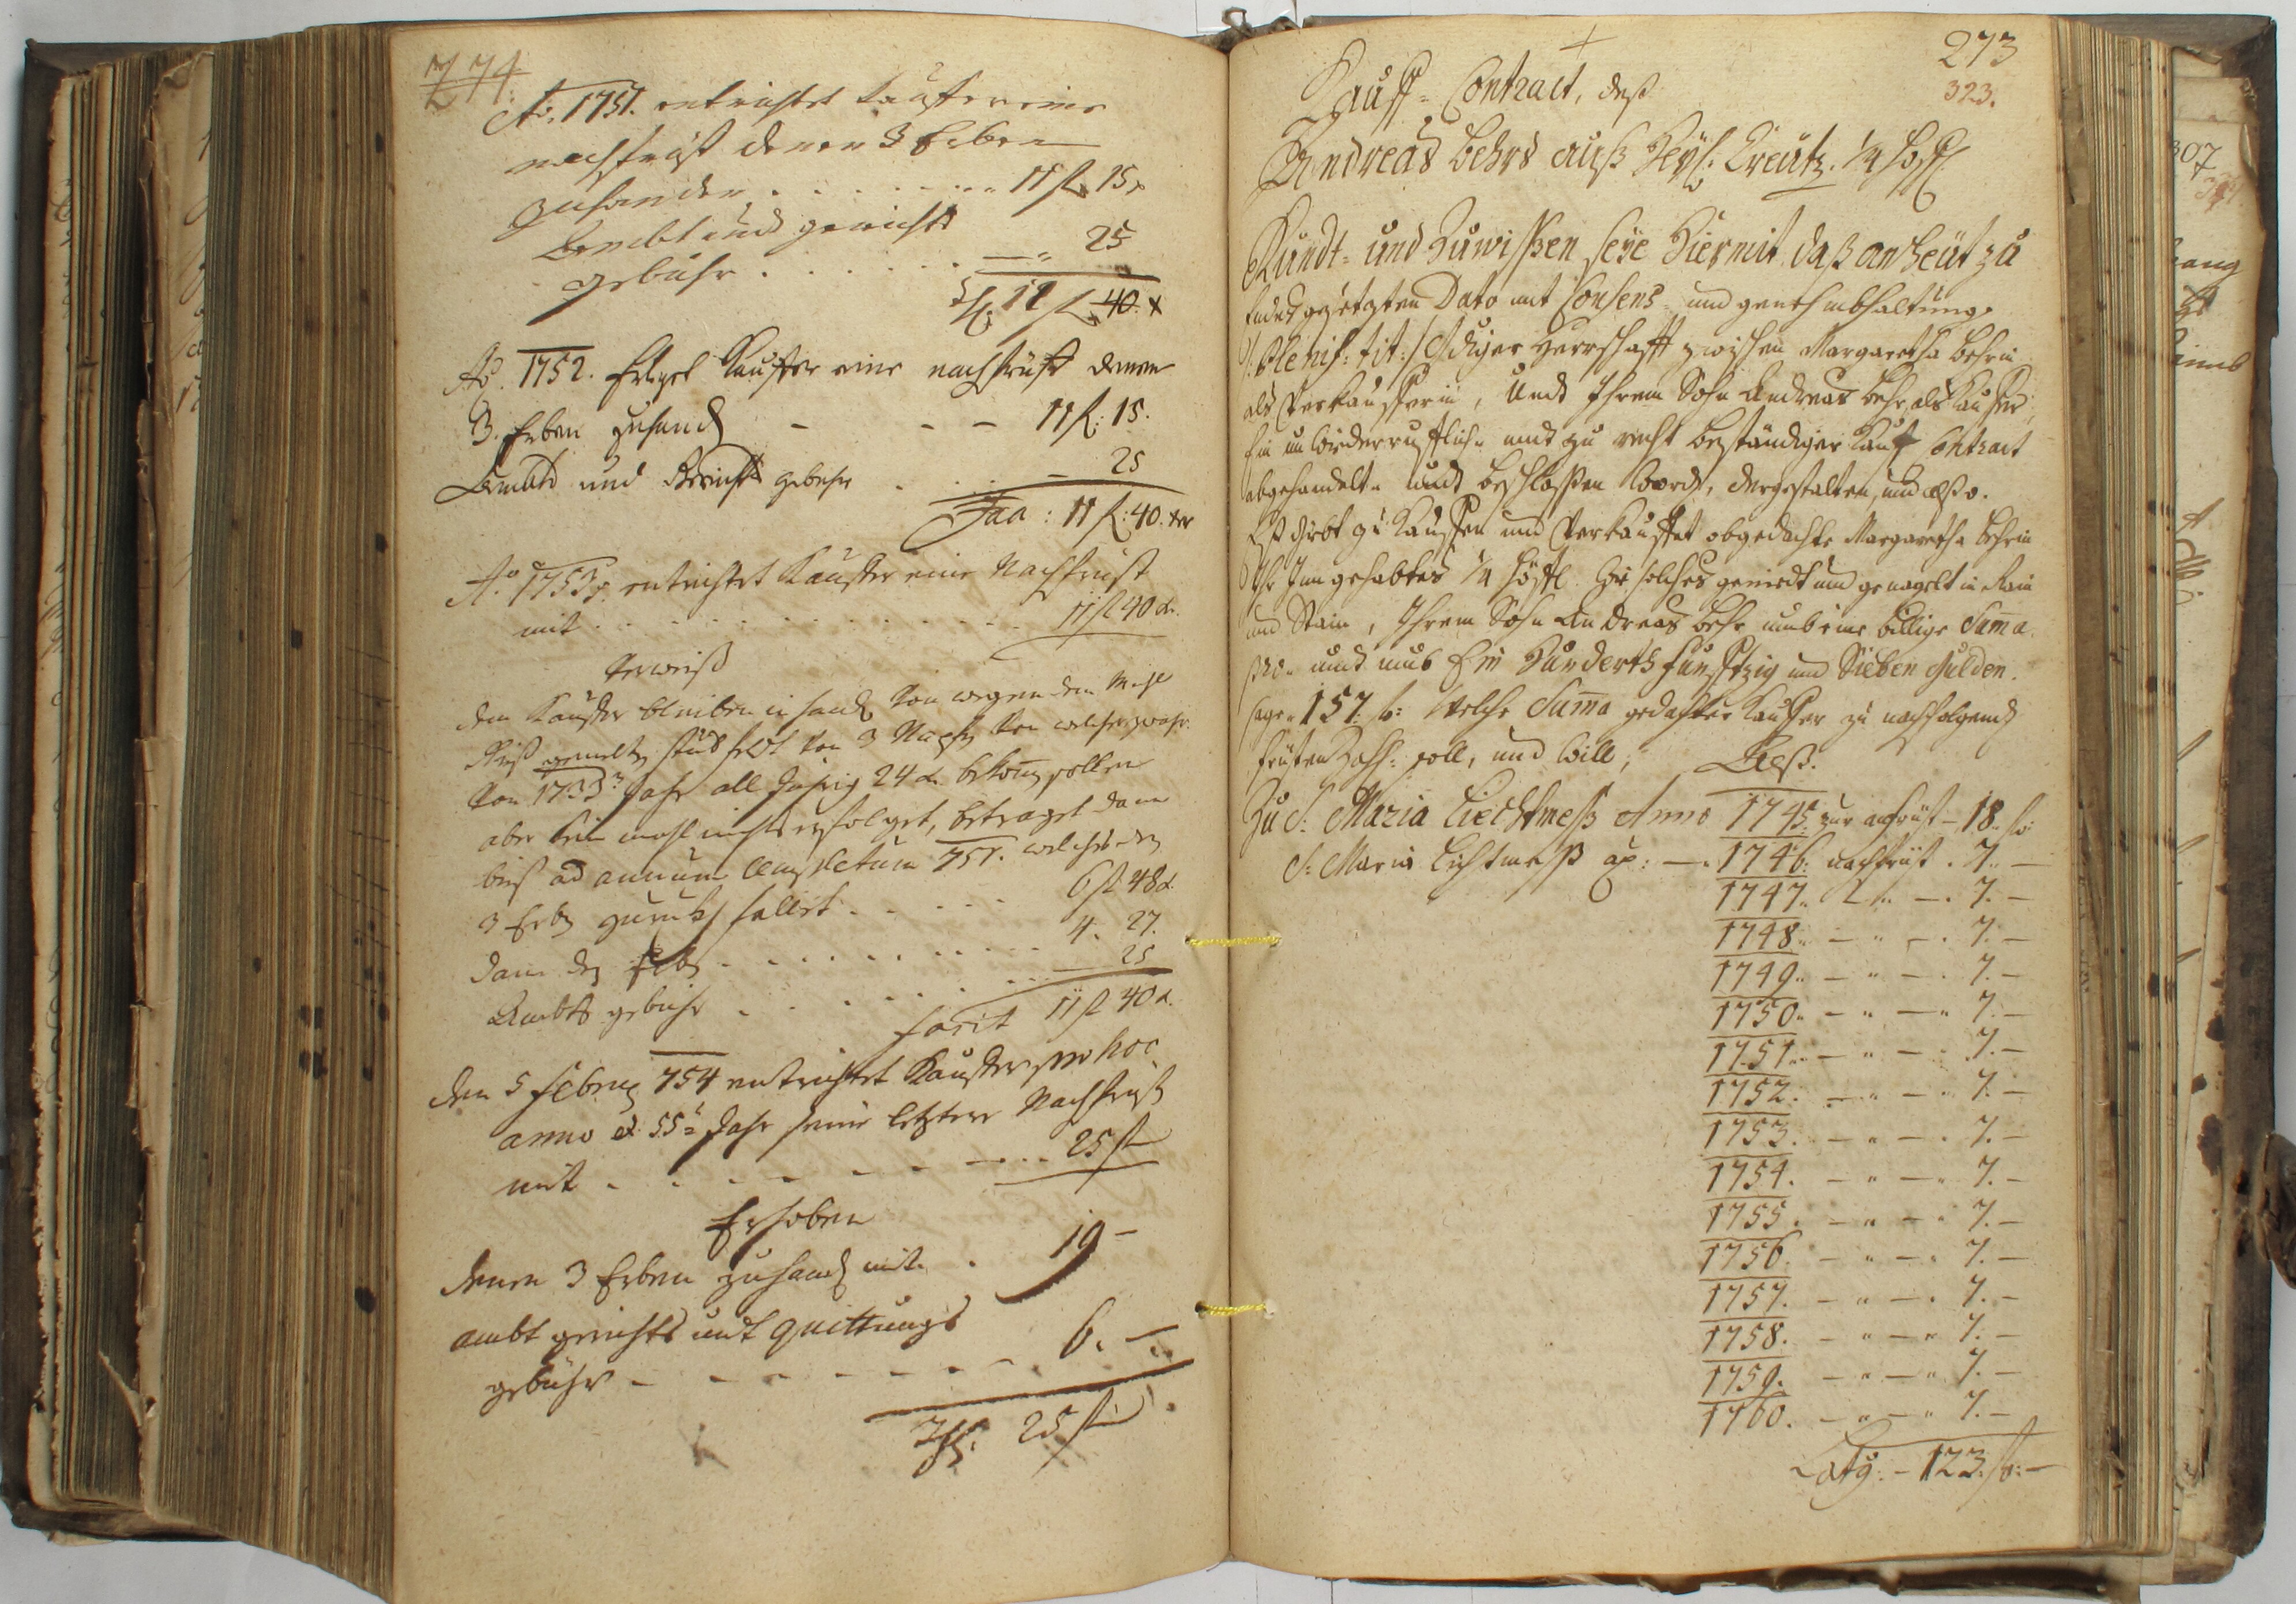 274
Ao. 1751. entrichtet Kauffer eine
nachfrist denen 3 Erben
zuhanden . . . . . . 11 fl 15 x
Ambt und gerichts
gebühr . . . . . . — " 25
11 fl 40 x
Ao. 1752. Erlegt Kauffer eine nachfrist denen
3. Erben zuhand — — — 11 fl: 15.
Ambts und Gerichts gebehr . . . — 25
11 fl: 40. xer
Ao. 1753. entrichtet Kauffer eine Nachfrist
mit . . . . . . . . . . 11 fl 40 x.
dem Kauffer bleiben in hand von wegen dem
von 3 von
von 1733 Jahr all Jährig 24 x. bekom sollen
aber kein mahl nichts erfolget, betraget dann
bis ad annum completum 751. welches den
3 Erb zuruckh fallet . . . . . 6 fl 48 x.
dann den Erb . . . . . . . . 4. 27.
Ambts gebühr . . . . . . . — 25
facit 11 fl 40 x.
den 5 Febru 754 entrichtet Kauffer pro hoc
anno et 55 Jahr seine letztere Nachfrist
mit . . . . . . . . 25 fl
Erhoben
denen 3 Erben zuhand mit . 19 —
ambt gerichts undt quittungs
gebühr — — — — — — 6. —
25 fl
273
323.
Kauff-Contract, deß
Andreas Behrs auß Creütz. 1/4 höfl.
Kundt- und Zuwissen seye Hiermit, daß an heüt zu
Endts gesetzten Dato mit Consens und genehmbhaltung
/: Plenis: tit: / Gdiger Herrschafft zwischen Margaretha Behrin
als Verkaufferin, Undt Ihrem Sohn Andreas Behr, als Kauffer
Ein unwiederrufflich- undt zu recht beständiger Kauf Contract
abgehandelt- undt beschlossen word, dergestalten, und also.
Eß gibt zu Kauffen und Verkauffet obgedachte Margaretha Behrin
Ihr Inngehabtes 1/4 höfl. Wie solches geniedt und genagelt in Rain
und Stain, Ihrem Sohn Andreas Behr umb eine billige Suma.
undt umb Ein Hunderth Funfftzig und Sieben Gulden.
sage. 157. fl: Welche Suma gedachter Kauffer zu nachfolgend
fristen Zahl: soll, und will, Alß.
Zu S: Maria Liechtmess Anno 1745. zur anfrist — 18. fl:
S: Maria Lichtmeß ao: — . 1746. nachfrist . 7. —
1747. " — . 7. —
1748. — " — . 7. —
1749. — " — . 7. —
1750. — " — " 7. —
1751. — " — . 7. —
1752. — " — " 7. —
1753. — " — . 7. —
1754. — " — " 7. —
1755. — " — . 7. —
1756. — " — " 7. —
1757. — " — . 7. —
1758. — " — " 7. —
1759. — " — " 7. —
1760. — " — " 7. —
Latg. — 123. fl: —
307